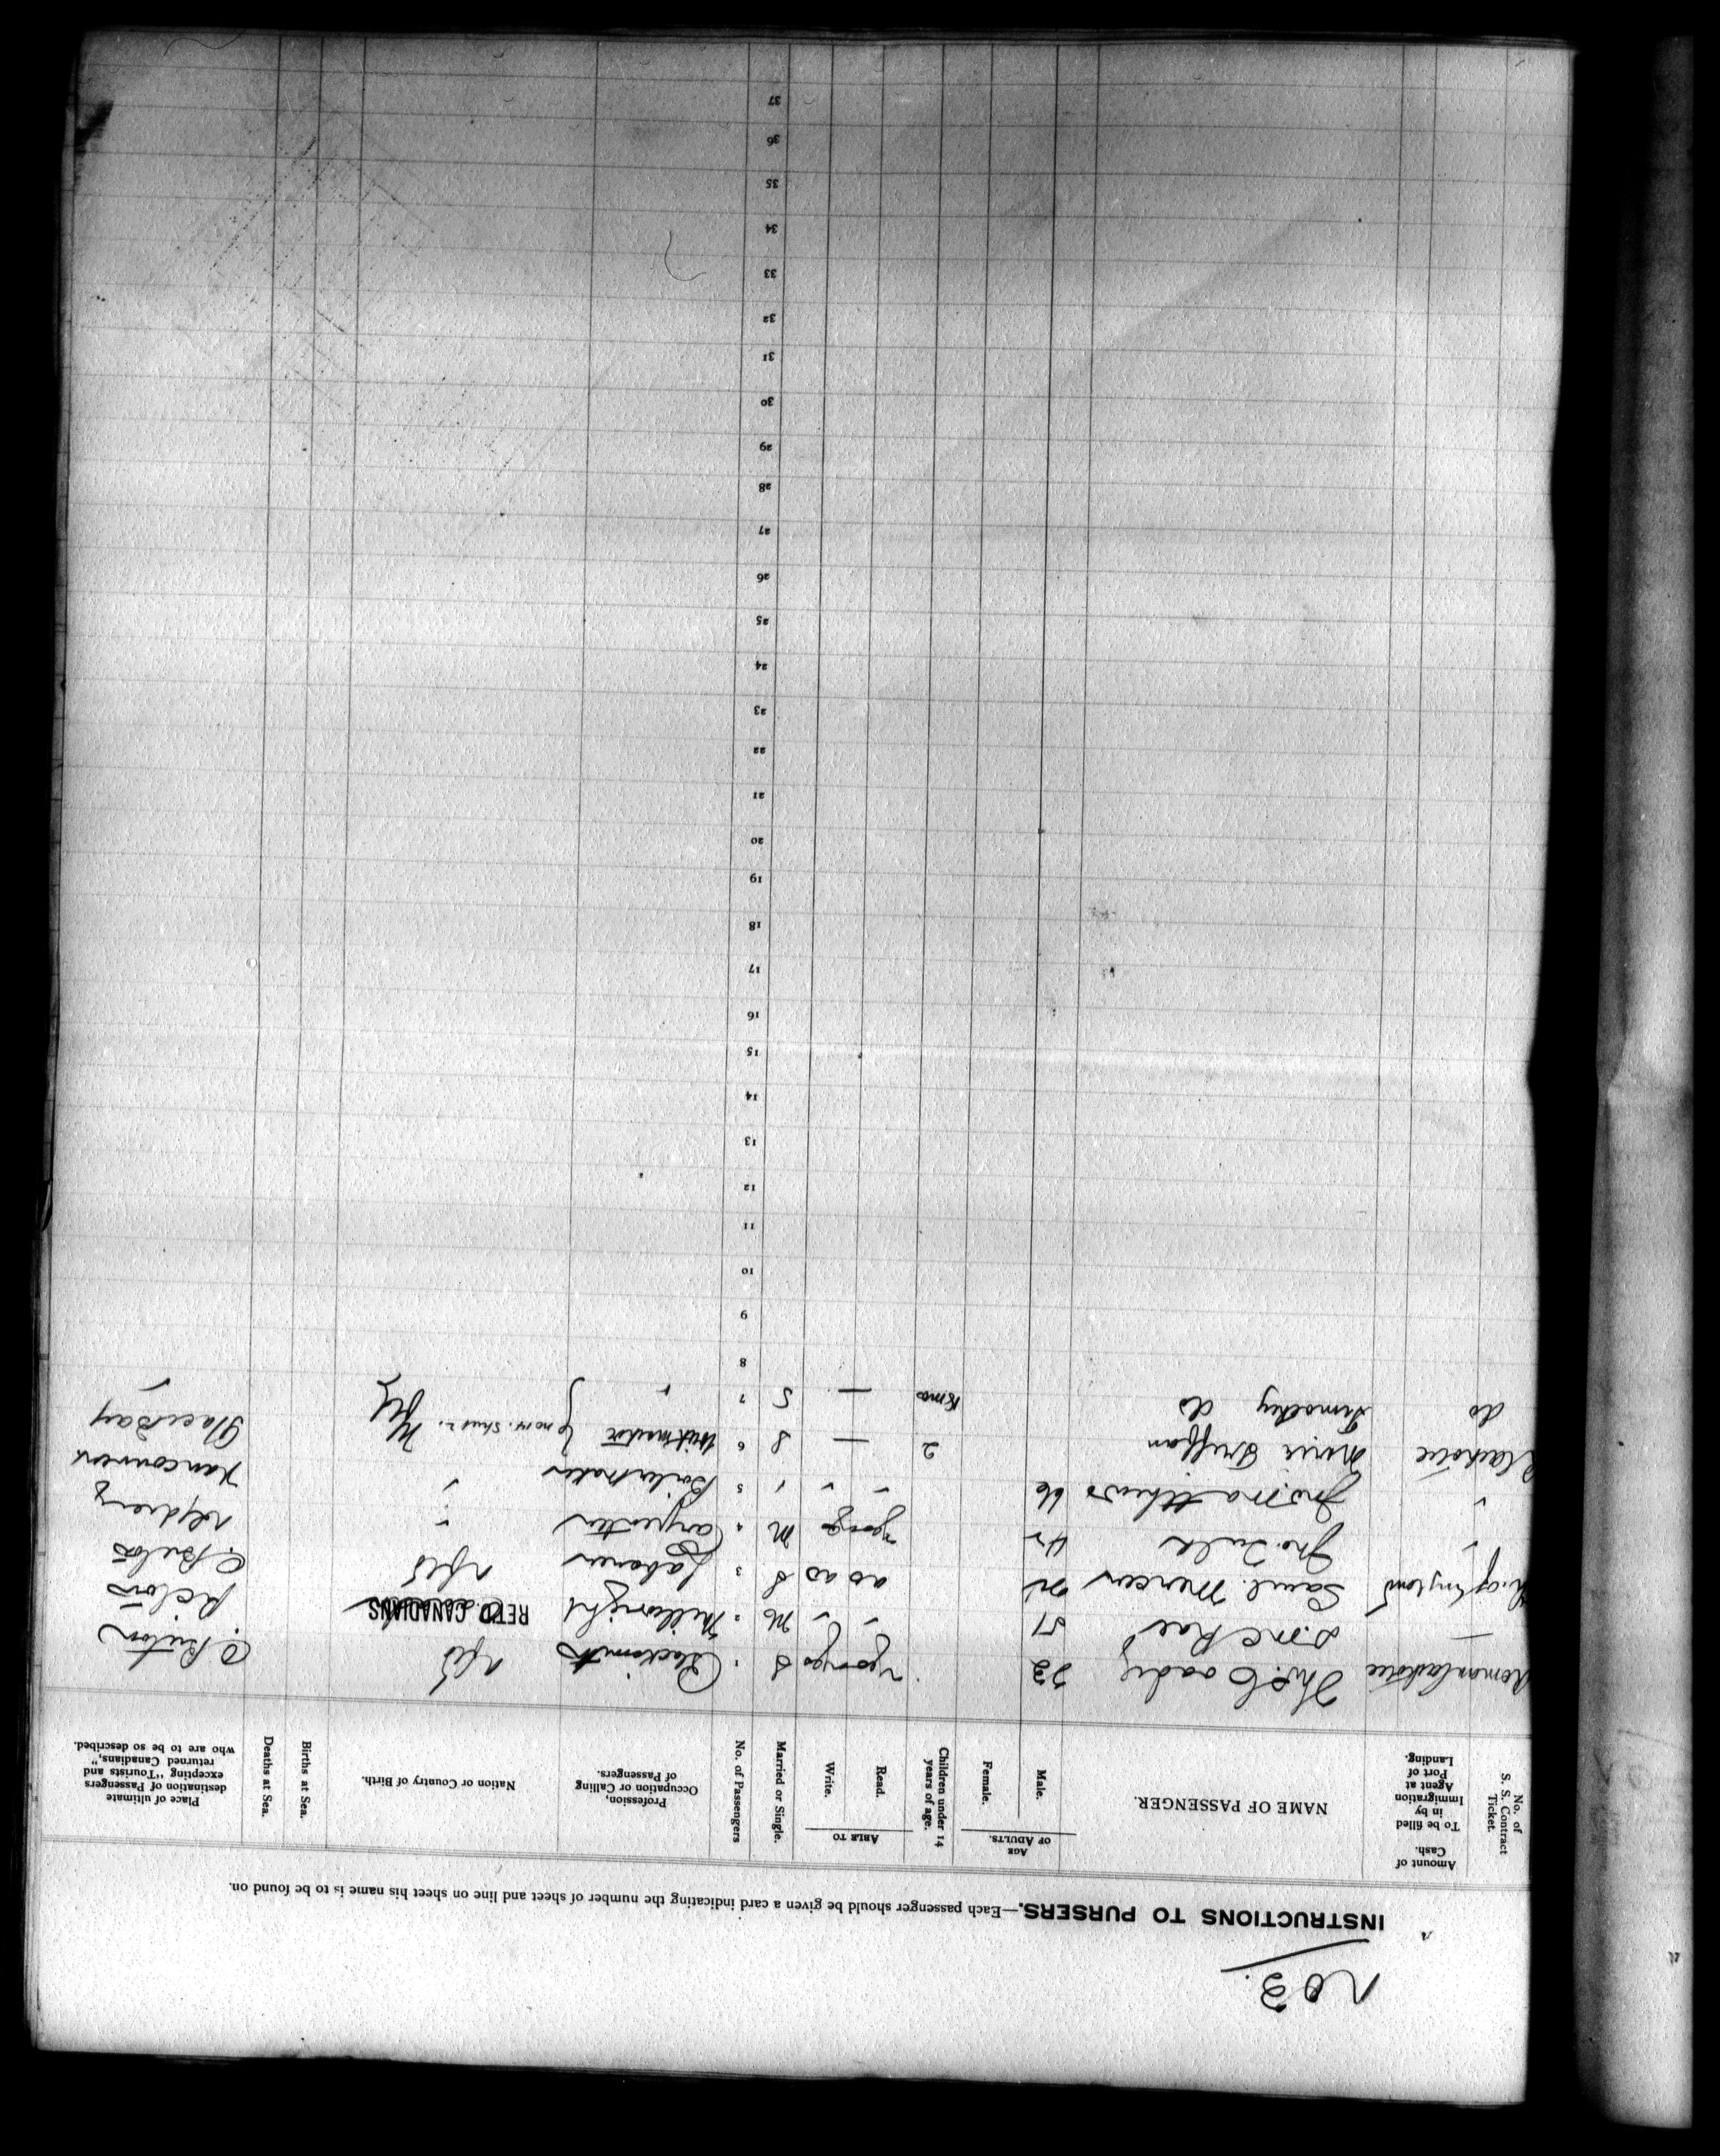 No 3.
INSTRUCTIONS TO PURSERS.—Each passenger should be given a card indicating the number of sheet and line on sheet his name is to be found on.
No. of S. S. Contract Ticket.
Amount of Cash. To be filled in by Immigration Agent at Port of Landing.
NAME OF PASSENGER.
AGE OF ADULTS.
Male.
Female.
Children under 14 years of age.
ABLE TO
Read.
Write.
Married or Single.
No. of Passengers
Profession, Occupation or Calling of Passengers.
Nation or Country of Birth.
Births at Sea.
Deaths at Sea.
Place of ultimate destination of Passengers excepting "Tourists and returned Canadians," who are to be so described.
Thos Coady 32 S 1 Blacksmith Nfld C. Breton
D. McRae 51 " " M 2 Millwright RETD CANADIANS Pictou
Ch. of England Saml. Mercer S 3 Labourer Nfld
" Jno. 42 M 4 Carpenter " Sydney
" Jno. Matthews 66 " " " 5 Boilermaker " Vancouver
Marie 2 — S 6 Nfld Glace Bay
do Timothy do 18mo — S 7 " "
8
9
10
11
12
13
14
15
16
17
18
19
20
21
22
23
24
25
26
27
28
29
30
31
32
33
34
35
36
37